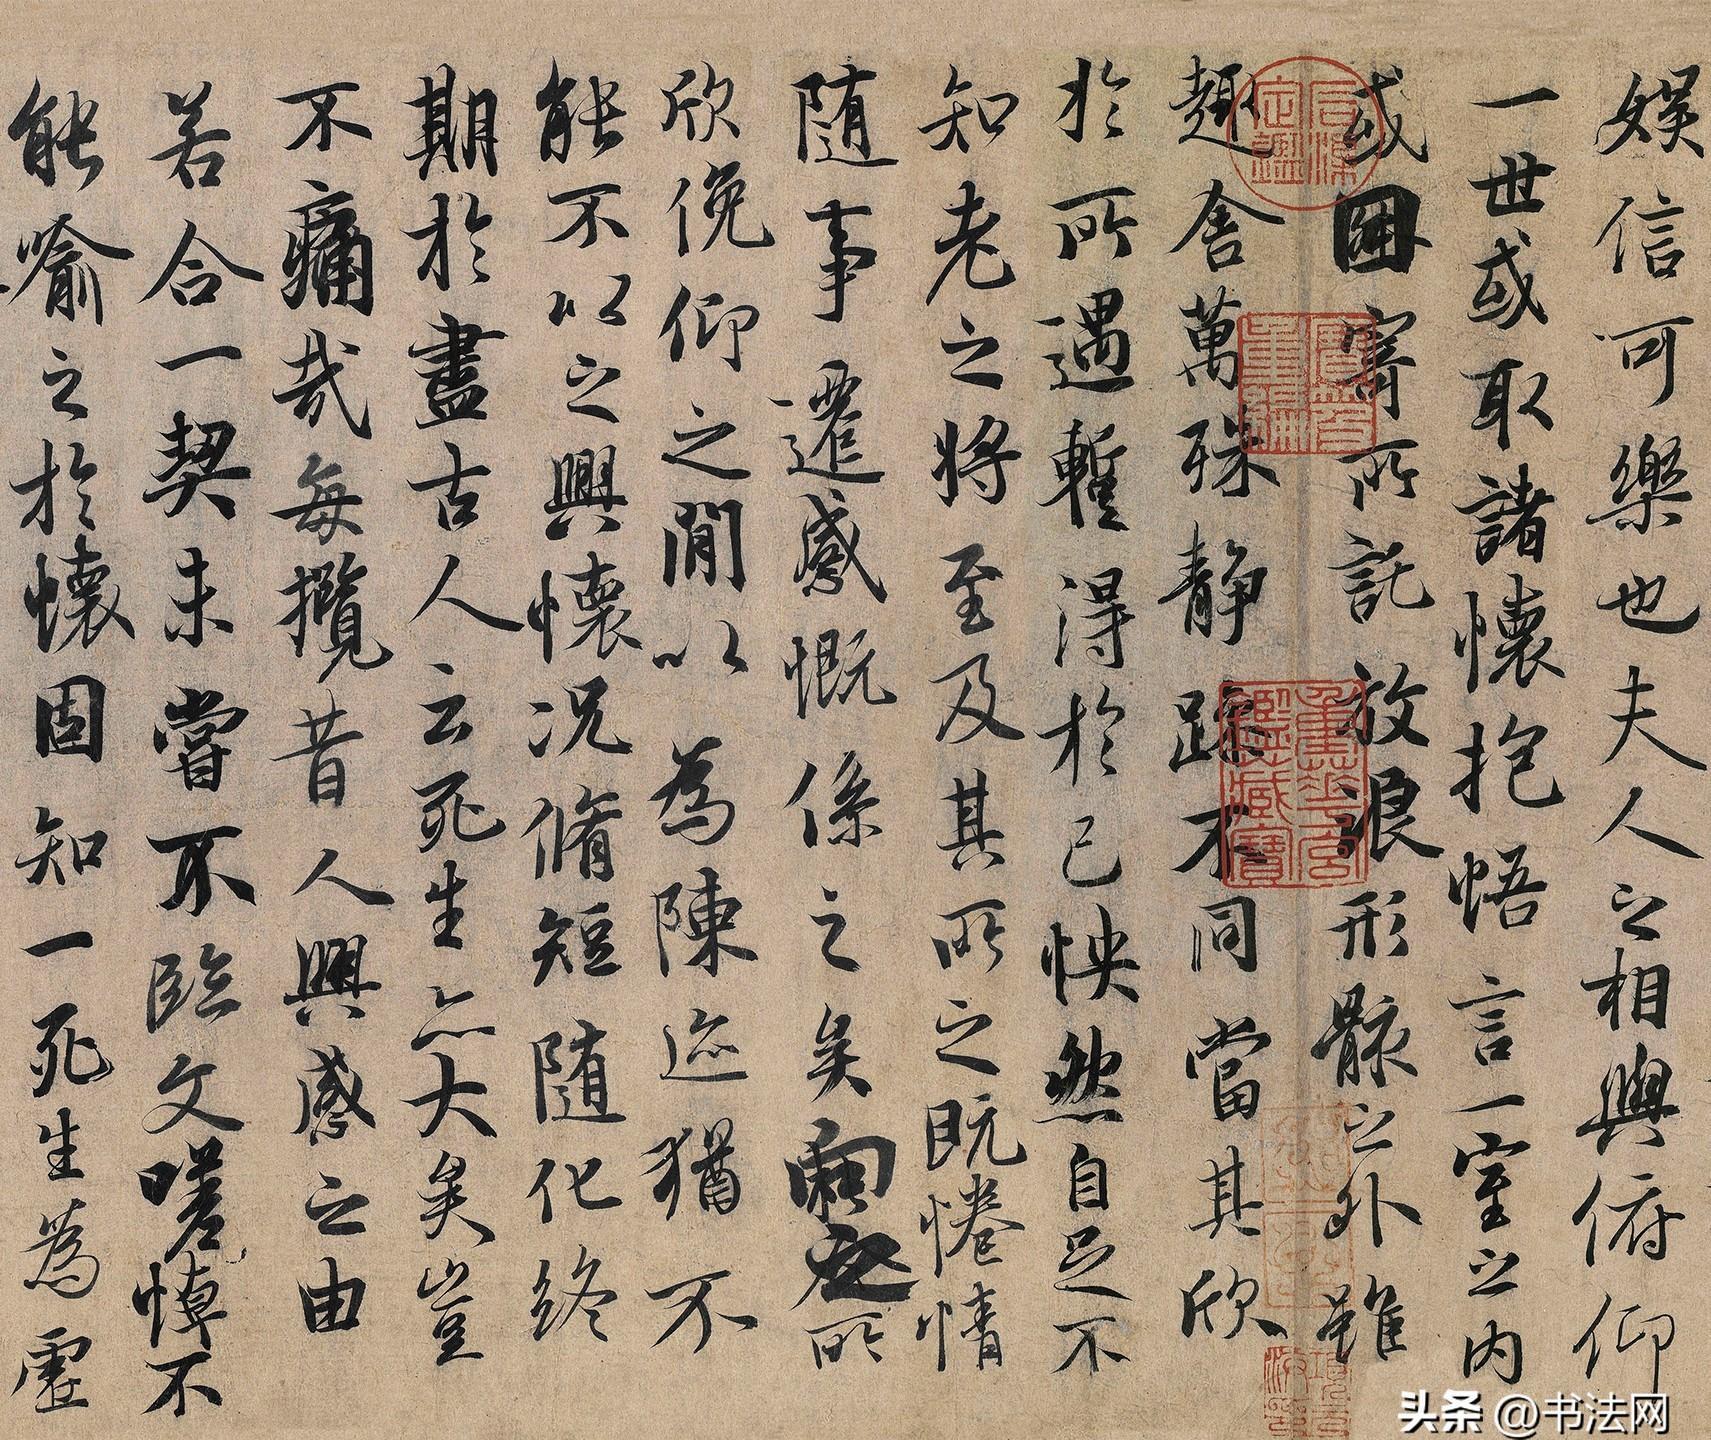 娛信可樂也夫人之相與俯仰
一世或取諸懷抱悟言一室之内
或因寄所託放浪形骸之外雖
趣舍萬殊静躁不同當其欣
於所遇暫得於己怏然自足不
知老之將至及其所之既惓情
随事遷感慨係之矣向之所
欣俛仰之閒以為陳迹猶不
能不以之興懷况脩短随化終
期於盡古人云死生亦大矣豈
不痛哉每攬昔人興感之由
若合一契未嘗不臨文嗟悼不
能喻之於懷固知一死生為虛
石渠定鑑
寶笈重編
重華宮鑑藏寶
头条 @书法网